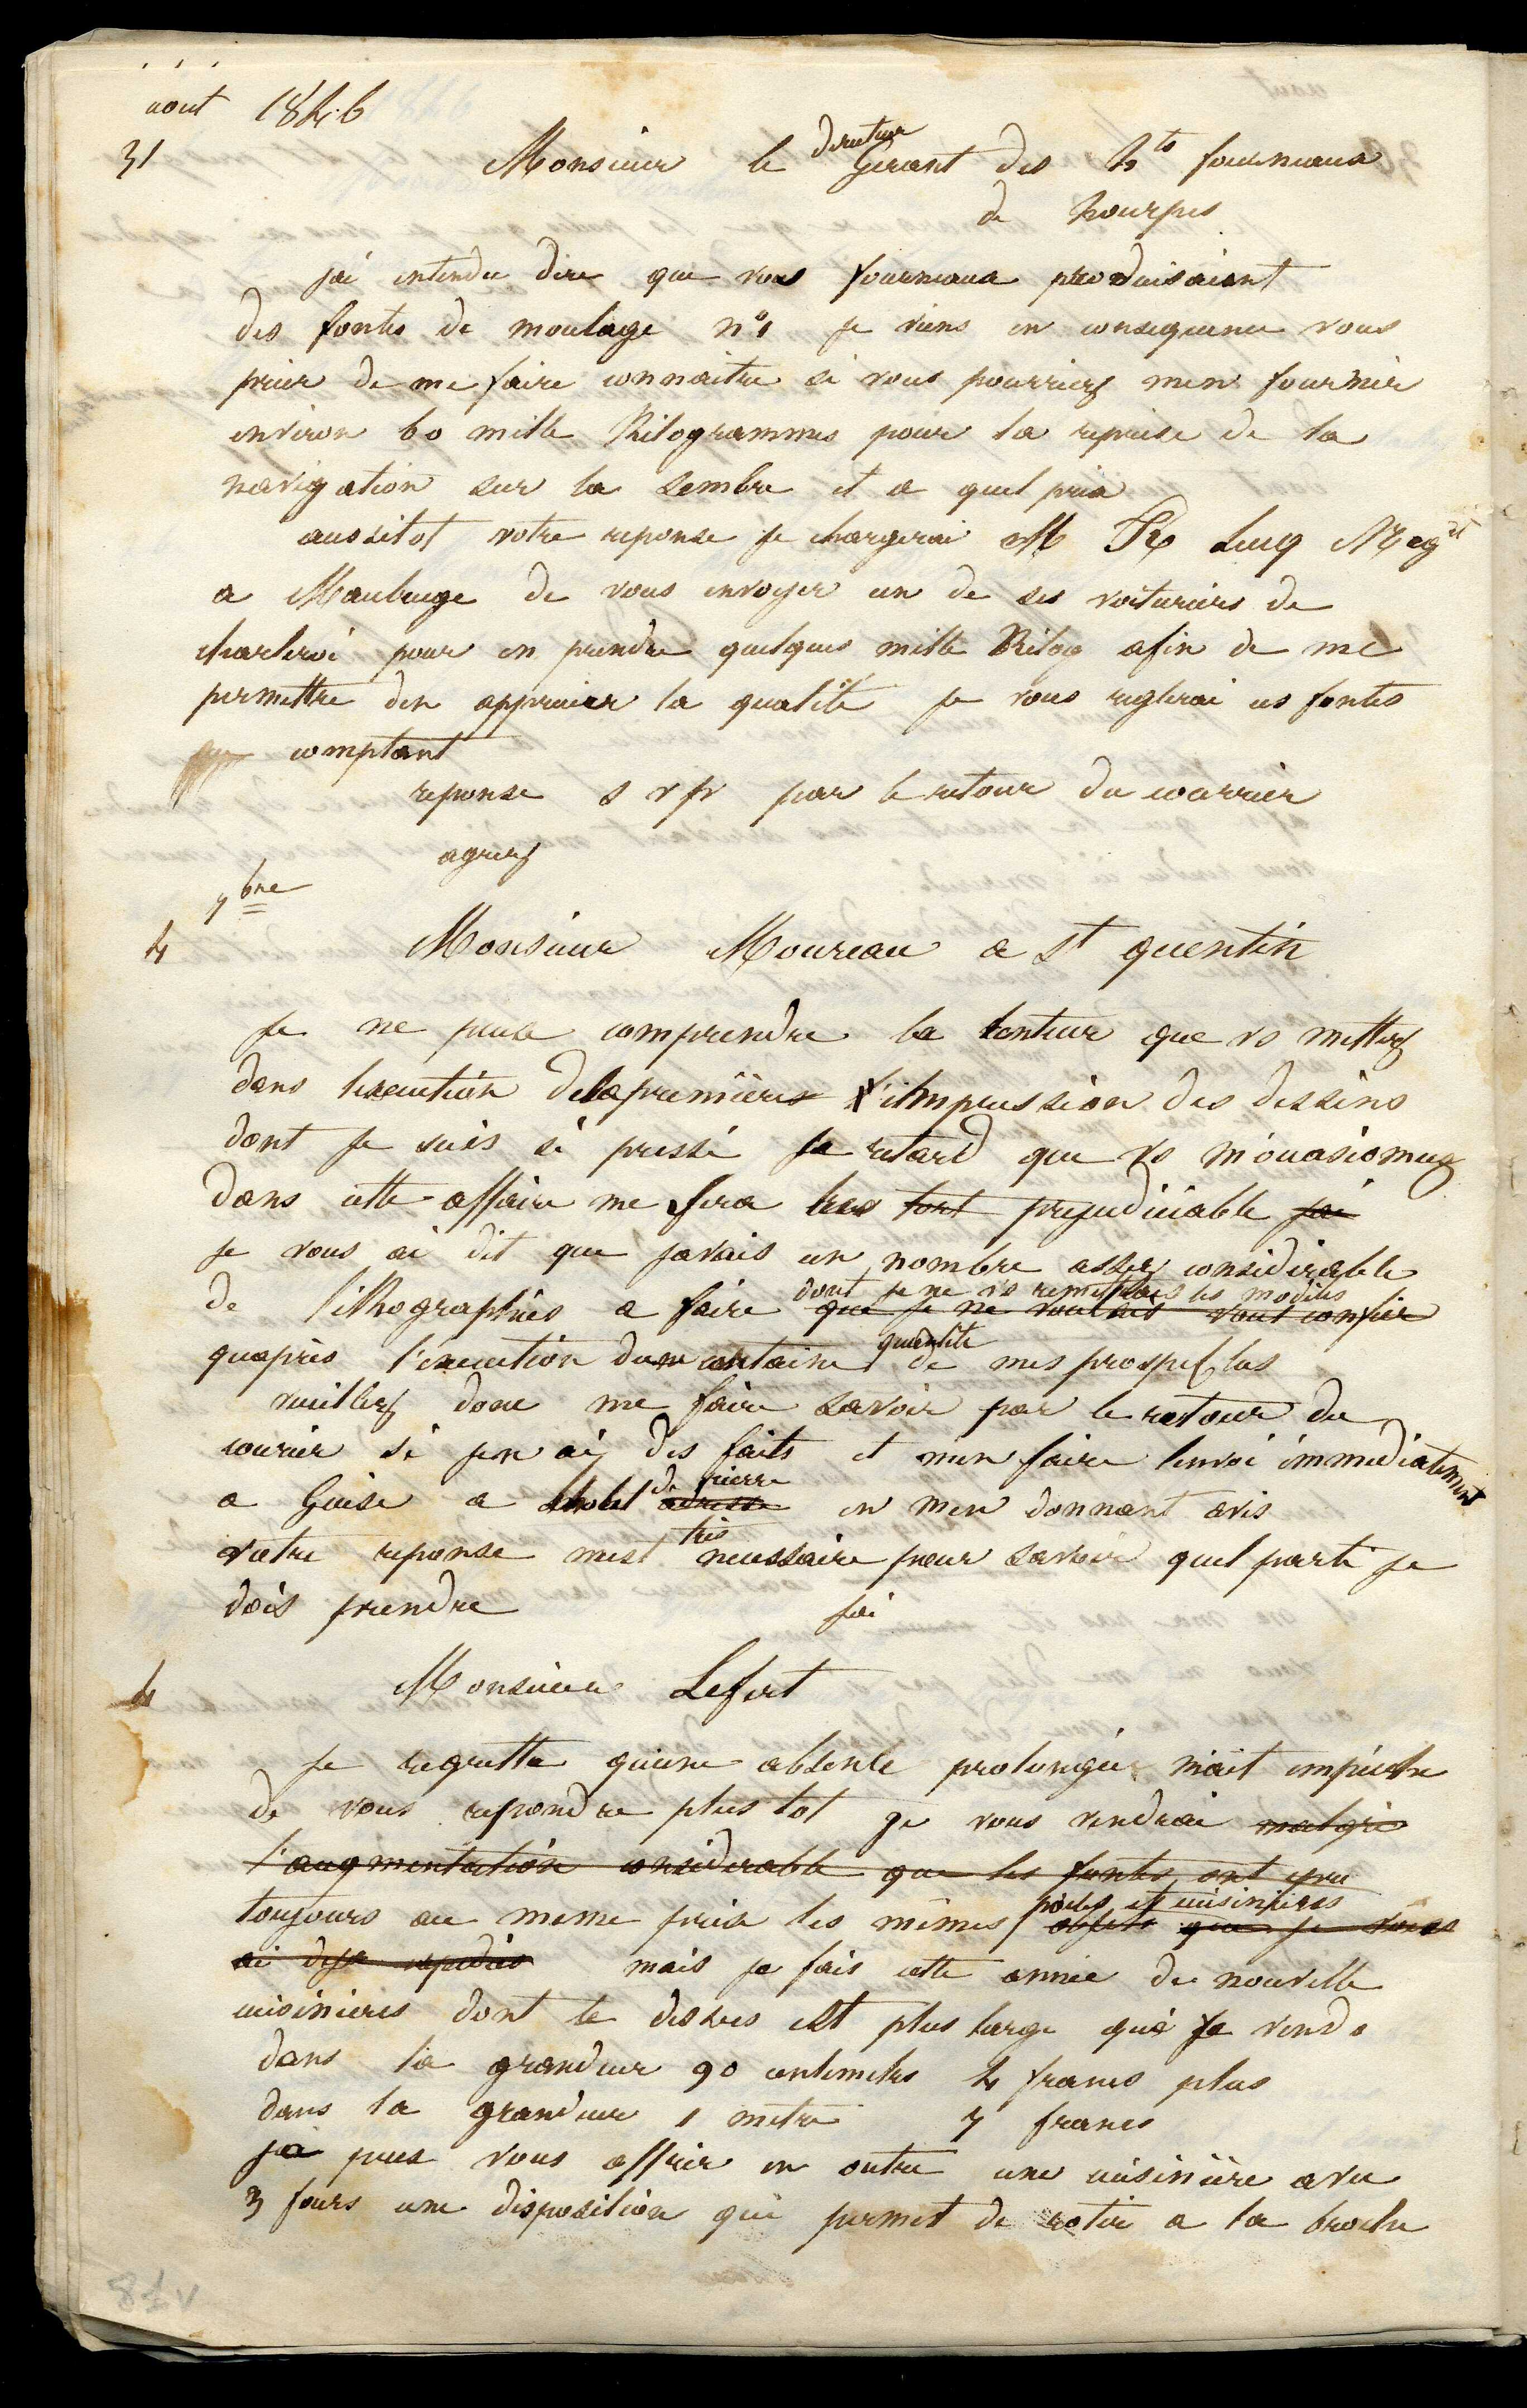 aout 1846
31
directeur
Monsieur le Gerant des hts fourneaux
de hourpes
jai entendu dire que vos fourneaux produisaient
des fontes de moulage n°1 je viens en consequence vous
prier de me faire connaitre si vous pourriez men fournir
environ 60 mille Kilogrammes pour la reprise de la
navigation sur la Sembre et a quel prix
aussitot votre reponse je chargerai M Lucq Negt
a Maubeuge de vous envoyer un de ses voituriers de
charleroi pour en prendre quelques mille Kilog afin de me
permettre den apprecier la qualité je vous reglerai ces fontes
comptant
reponse s v p par le retour du courrier
agreez
7bre
4 Monsieur Moureau a St quentin
Je ne puis comprendre la lenteur que vs mettez
dans lexecution delapremieres l'impression des dessins
dont je suis si pressé le retard que vs m'occasionnez
dans cette affaire me sera tres tort prejudiciable jai
je vous ai dit que javais un nombre assez considerable
dont je ne vs remettrais les modeles
de lithographies a faire que je ne voulais vous confier
quantite
quapres l'execution dune certaine de mes prospectus
veuillez donc me faire savoir par le retour du
courier si jen ai des faits et men faire lenvoi immediatement
de pierre
a Guise a lhotel adresse en men donnant avis
très
votre reponse mest necessaire pour savoir quel parti je
dois prendre
jai
4 Monsieur Lefort
Je regrette quune absence prolongée mait empeché
de vous repondre plus tot je vous vendrai malgré
l'augmentation considerable que les fontes ont epru
poeles et cuisinieres
toujours au meme prix les mêmes objets que je vous
ai deja expediés mais je fais cette année de nouvelle
cuisinieres dont le dessus est plus large que je vends
dans la grandeur 90 centimetres 4 francs plus
dans la grandeur 1 metre 7 francs
je puis vous offrir en outre une cuisinière avec
3 fours une disposition qui permet de rotir a la broche
81v